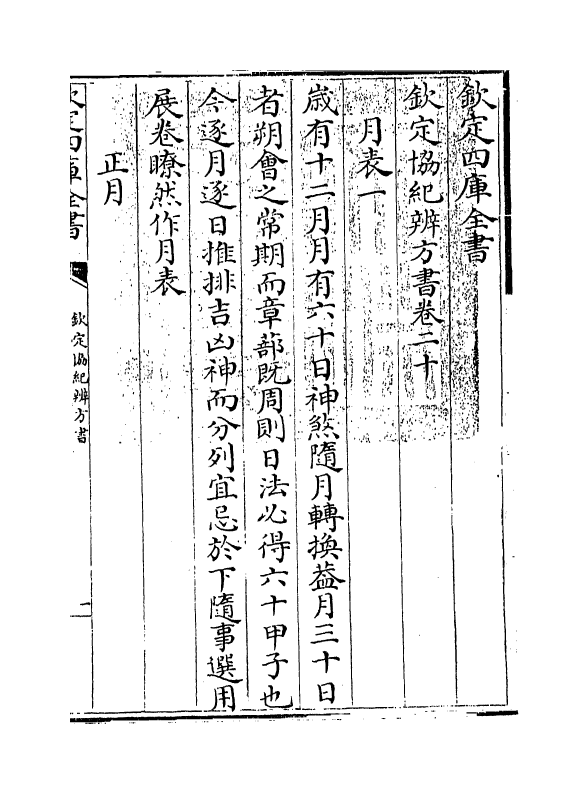 欽定四庫全書
欽定協紀辨方書卷二十
月表一
歲有十二月月有六十日神煞隨月轉換葢月三十日
者朔會之常期而章蔀既周則日法必得六十甲子也
今逐月逐日推排吉凶神而分列宜忌於下隨事選用
展卷瞭然作月表
正月
欽定四庫全書
欽定協紀辨方書